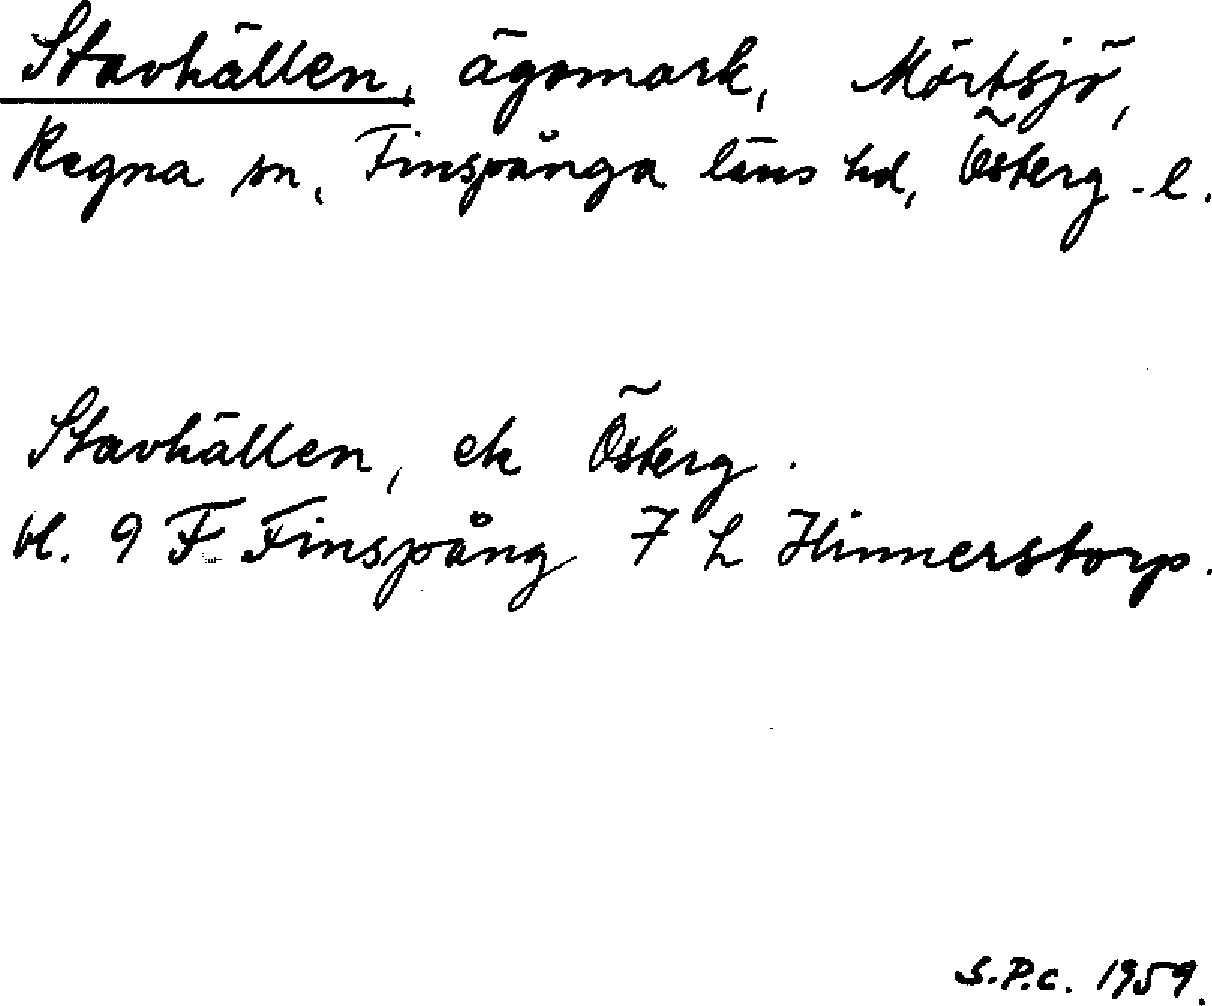 Stavhällen, ägomark, Mörtsjö,
Regna sn, Finspånga läns hd, Österg. l.
Stavhällen, ek Österg.
bl. 9 F Finspång 7 h Hinnerstorp.
S.P.C. 1959.